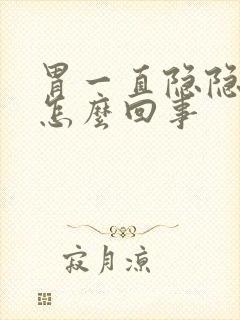 胃一直隐隐
怎麼回事
寂月凉